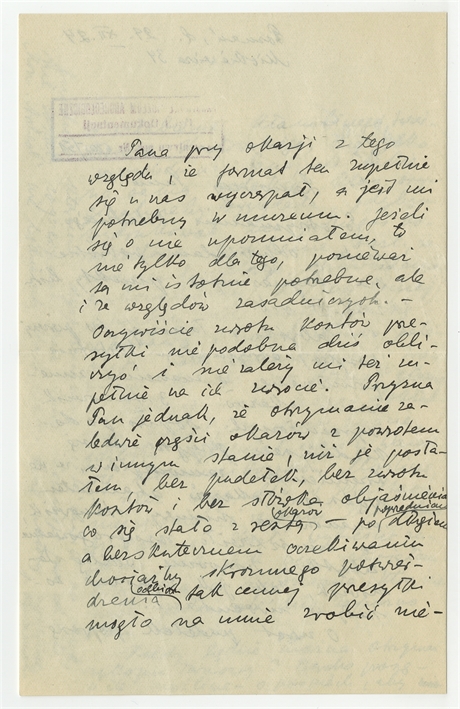 Pana przy okazji z tego
względu, że format ten zupełnie
się u nas wyczerpał, a jest mi
potrzebny w muzeum. Jeżeli
się o nie upomniałem, to
nie tylko dla tego, ponieważ
są mi istotnie potrzebne, ale
i ze względów zasadniczych. –
Oczywiście zwrotu kosztów prze-
syłki niepodobna dziś obli-
czyć i nie zależy mi też zu-
pełnie na ich zwrocie. Przyzna
Pan jednak, że otrzymanie za-
ledwie części okazów z powrotem
w innym stanie, niż je posła-
łem, bez pudełek, bez zwrotu
kosztów i bez słówka objaśnienia
okazów poprzedniem
co się stało z resztą – po długiem
a bezskutecznem oczekiwaniu
chociażby skromnego potwier-
odbioru
dzenia tak cennej przesyłki
mogło na mnie zrobić nie-